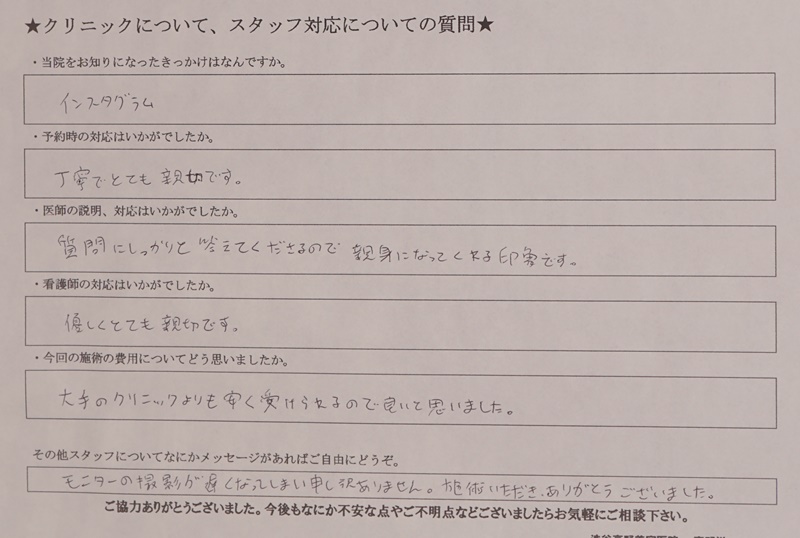 ★クリニックについて、スタッフ対応についての質問★
・当院をお知りになったきっかけはなんですか。
インスタグラム
・予約時の対応はいかがでしたか。
丁寧でとても親切です。
・医師の説明、対応はいかがでしたか。
質問にしっかりと答えてくださるので親身になってくれる印象です。
・看護師の対応はいかがでしたか。
優しくとても親切です。
・今回の施術の費用についてどう思いましたか。
大手のクリニックよりも安く受けられるので良いと思いました。
その他スタッフについてなにかメッセージがあればご自由にどうぞ。
モニターの撮影が遅くなってしまい申し訳ありません。施術いただき、ありがとうございました。
ご協力ありがとうございました。今後もなにか不安な点やご不明点などございましたらお気軽にご相談下さい。